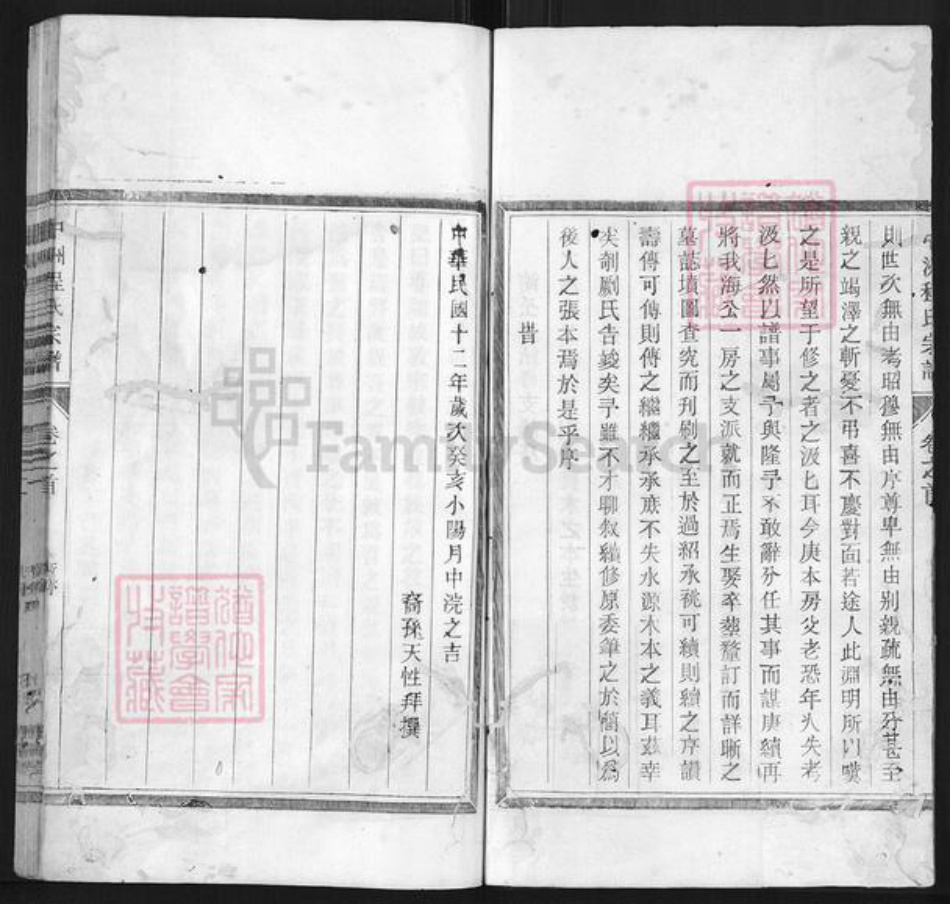 則世次無由考昭穆無由序尊卑無由别親疏無由分甚至
親之竭澤之斬憂不弔喜不慶對面若途人此淵明所以嘆
之是所望于修之者之汲匕耳今庚本房父老恐年久失考
汲匕然以譜事屬予與隆予不敢辭分任其事而謀庚續再
將我海公一房之支派就而正焉生娶卒塟釐訂而詳晰之
墓誌墳圖查究而刊刷之至於過紹承祧可續則續之序讚
壽傳可傳則傳之繼繼承承庶不失水源木本之義耳玆幸
矣剞劂氏告竣矣予雖不才聊叙續修原委筆之於簡以為
後人之張本焉於是乎序
旹
中華民國十二年歲次癸亥小陽月中浣之吉
裔孫天性拜撰
程氏宗譜
卷之首
中洲程氏宗譜
卷之首
譜學會
收藏
FamilySearch